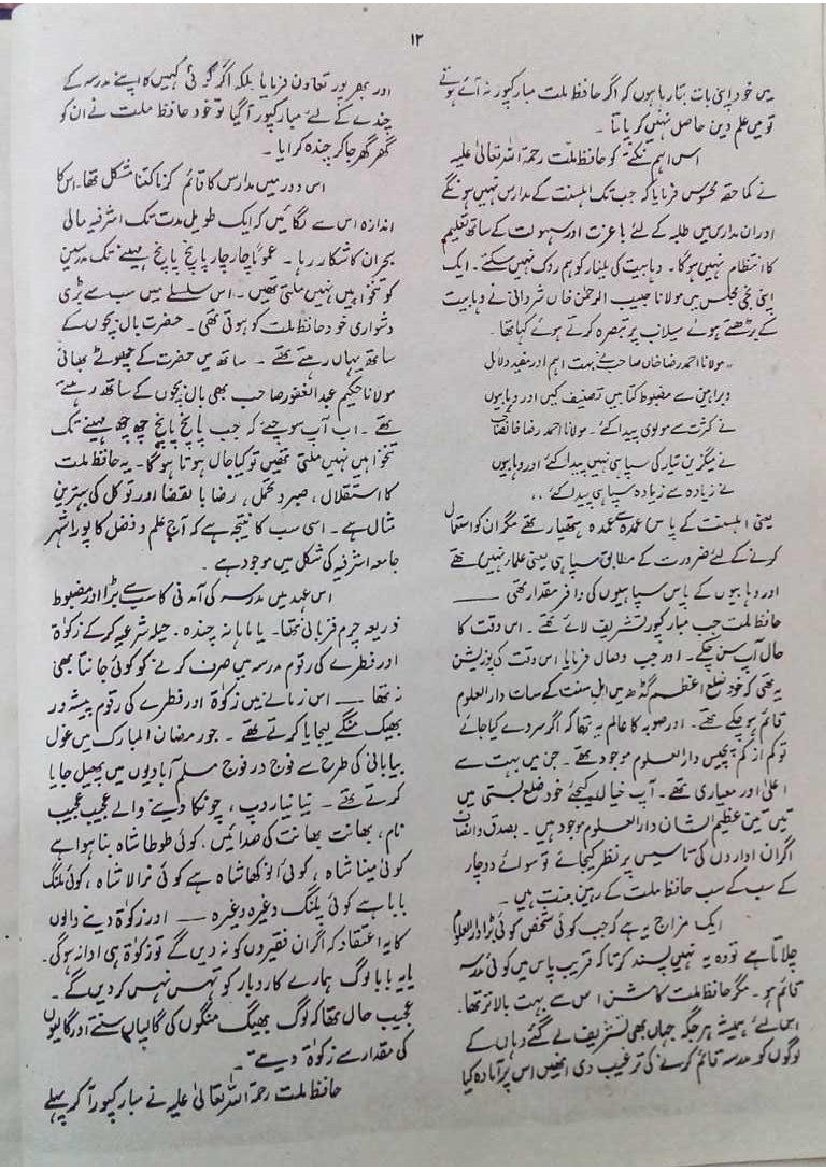 ۱۲
میں خود اپنی بات بتا رہا ہوں کہ اگر حافظ ملت مبارکپور نہ آئے ہوتے
تو میں علم دین حاصل نہیں کر پاتا ۔
اس اہم نکتے کو حافظ ملت رحمۃ اللہ تعالیٰ علیہ
نے کما حقہ محسوس فرمایا کہ جب تک اہلسنت کے مدارس نہیں ہونگے
اور ان مدارس میں طلبہ کے لئے باعزت اور سہولت کے ساتھ تعلیم
کا انتظام نہیں ہوگا ۔ وہابیت کی یلغار کو ہم روک نہیں سکتے ۔ ایک
اپنی نجی مجلس میں مولانا حبیب الرحمٰن خاں شروانی نے وہابیت
کے بڑھتے ہوئے سیلاب پر تبصرہ کرتے ہوئے کہا تھا ۔
،، مولانا احمد رضا خاں صاحب نے بہت اہم اور مفید دلائل
وبراہین سے مضبوط کتابیں تصنیف کیں اور وہابیوں
نے کثرت سے مولوی پیدا کئے ۔ مولانا احمد رضا خانصاحب
نے میگزین تیار کی سپاہی نہیں پیدا کئے اور وہابیوں
نے زیادہ سے زیادہ سپاہی پیدا کئے ،،
یعنی اہلسنت کے پاس عمدہ سے عمدہ ہتھیار تھے مگر ان کو استعمال
کرنے کے لئے ضرورت کے مطابق سپاہی یعنی علماء نہیں تھے
اور وہابیوں کے پاس سپاہیوں کی وافر مقدار تھی ——
حافظ ملت جب مبارکپور تشریف لائے تھے ۔ اس وقت کا
حال آپ سن چکے ۔ اور جب وصال فرمایا اس وقت کی پوزیشن
یہ تھی کہ خود ضلع اعظم گڈھ میں اہل سنت کے سات دارالعلوم
قائم ہو چکے تھے ۔ اور صوبہ کا عالم یہ تھا کہ اگر سروے کیا جائے
تو کم از کم پچیس دارالعلوم موجود تھے ۔ جن میں بہت سے
اعلیٰ اور معیاری تھے ۔ آپ خیال کیجئے خود ضلع بستی میں
تین تین عظیم الشان دارالعلوم موجود ہیں ۔ بصدق وانصاف
اگر ان اداروں کی تاسیس پر نظر کیجائے تو سوائے دو چار
کے سب کے سب حافظ ملت کے رہین منت ہیں ۔
ایک مزاج یہ ہے کہ جب کوئی شخص کوئی بڑا دارالعلوم
چلاتا ہے تو وہ یہ نہیں پسند کرتا کہ قریب پاس میں کوئی مدرسہ
قائم ہو ۔ مگر حافظ ملت کا مشن اس سے بہت بالاتر تھا ۔
اس لئے ہمیشہ ہر جگہ جہاں بھی تشریف لے گئے وہاں کے
لوگوں کو مدرسہ قائم کرنے کی ترغیب دی انھیں اس پر آمادہ کیا
اور بھرپور تعاون فرمایا بلکہ اگر کوئی کہیں کا اپنے مدرسہ کے
چندے کے لئے مبارکپور آگیا تو خود حافظ ملت نے ان کو
گھر گھر جا کر چندہ کرایا ۔
اس دور میں مدارس کا قائم کرنا کتنا مشکل تھا ۔ اس کا
اندازہ اس سے لگائیں کہ ایک طویل مدت تک اشرفیہ مالی
بحران کا شکار رہا ۔ عموماً چار چار پانچ پانچ مہینے تک مدرسین
کو تنخواہیں نہیں ملتی تھیں ۔ اس سلسلے میں سب سے بڑی
دشواری خود حافظ ملت کو ہوتی تھی ۔ حضرت بال بچوں کے
ساتھ یہاں رہتے تھے ۔ ساتھ میں حضرت کے چھوٹے بھائی
مولانا حکیم عبد الغفور صاحب بھی بال بچوں کے ساتھ رہتے
تھے ۔ اب آپ سوچئے کہ جب پانچ پانچ چھ چھ مہینے تک
تنخواہیں نہیں ملتی تھیں تو کیا حال ہوتا ہوگا ۔ یہ حافظ ملت
کا استقلال ، صبر و تحمل ، رضا بالقضا اور توکل کی بہترین
مثال ہے ۔ اسی سب کا نتیجہ ہے کہ آج علم و فضل کا پورا شہر
جامعہ اشرفیہ کی شکل میں موجود ہے ۔
اس عہد میں مدرسہ کی آمدنی کا سب سے بڑا اور مضبوط
ذریعہ چرم قربانی تھا ۔ یا ماہانہ چندہ ۔ حیلہ شرعیہ کر کے زکوٰۃ
اور فطرے کی رقوم مدرسہ میں صرف کرنے کو کوئی جانتا بھی
نہ تھا —— اس زمانے میں زکوٰۃ اور فطرے کی رقوم پیشہ ور
بھیک منگے لیجایا کرتے تھے ۔ جو رمضان المبارک میں غول
بیابانی کی طرح سے فوج در فوج مسلم آبادیوں میں پھیل جایا
کرتے تھے ۔ نیا نیا روپ ، چونکا دینے والے عجیب عجیب
نام ، بھانت بھانت کی صدائیں ، کوئی طوطا شاہ بنا ہوا ہے
کوئی مینا شاہ ، کوئی انوکھا شاہ ہے کوئی نرالا شاہ ، کوئی ملنگ
بابا ہے کوئی پلنگ وغیرہ وغیرہ —— اور زکوٰۃ دینے والوں
کا یہ اعتقاد کہ اگر ان فقیروں کو نہ دیں گے تو زکوٰۃ ہی ادا نہ ہوگی ۔
یا یہ بابا لوگ ہمارے کاروبار کو تہس نہس کر دیں گے ۔
عجیب حال تھا کہ لوگ بھیک منگوں کی گالیاں سنتے اور گالیوں
کی مقدار سے زکوٰۃ دیتے ۔
حافظ ملت رحمۃ اللہ تعالیٰ علیہ نے مبارکپور آ کر پہلے